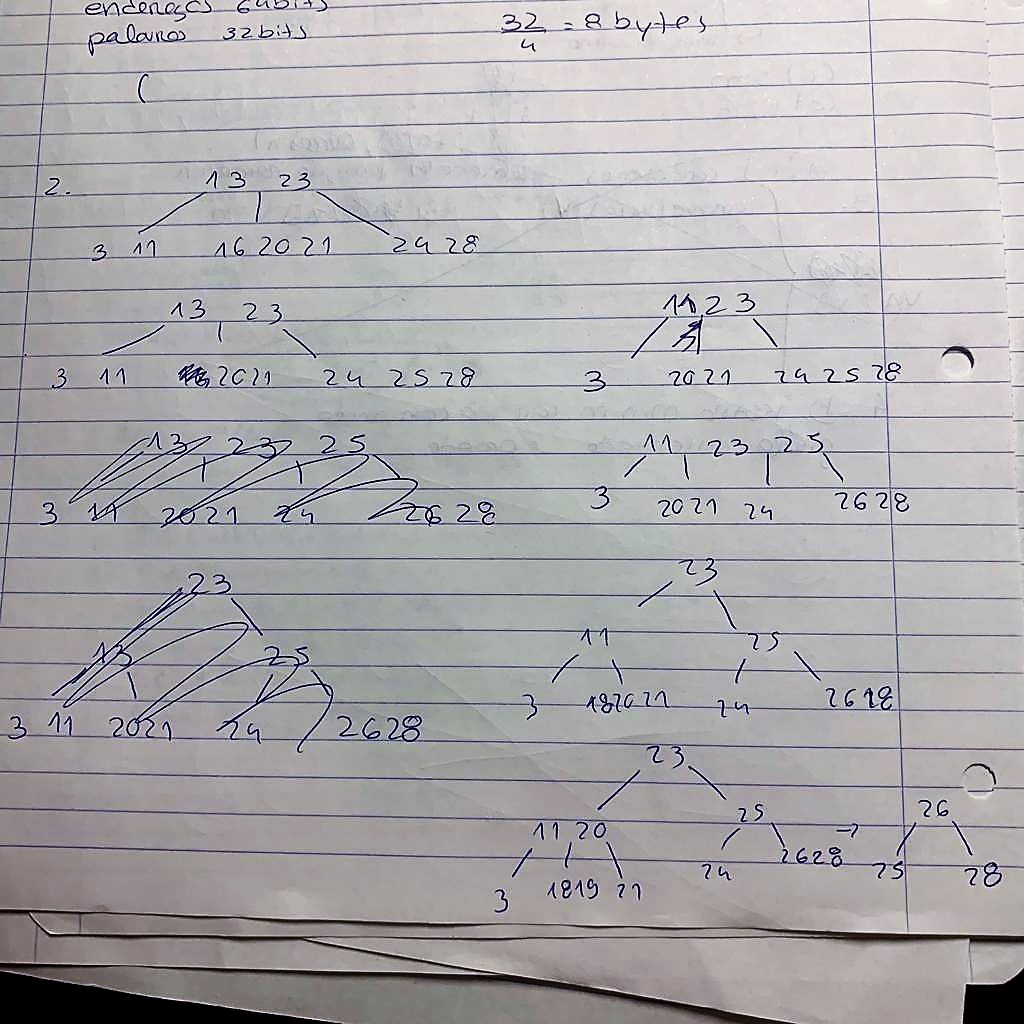 endereços 64bits
palavras 32bits
32/4 = 8 bytes
(
2.
13 23
3 11 16 20 21 24 28
13 23
3 11 20 21 24 25 28
11 23
3 20 21 24 25 28
13 23 25
3 11 20 21 24 26 28
11 23 25
3 20 21 24 26 28
23
13 25
3 11 20 21 24 26 28
23
11 25
3 18 20 21 24 26 28
23
11 20 25
3 18 19 21 24 26 28 →
26
25 28